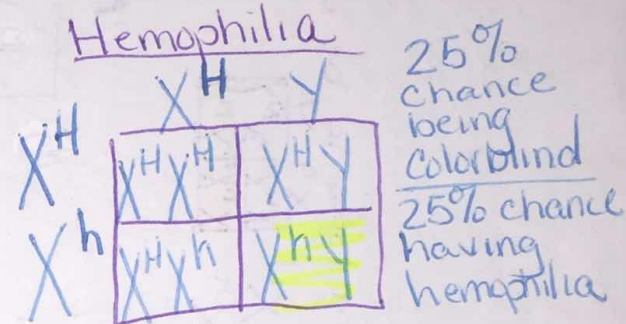 Hemophilia
X^H Y
X^H X^HX^H X^HY
X^h X^HX^h X^hY
25%
chance
being
Colorblind
25% chance
having
hemophilia